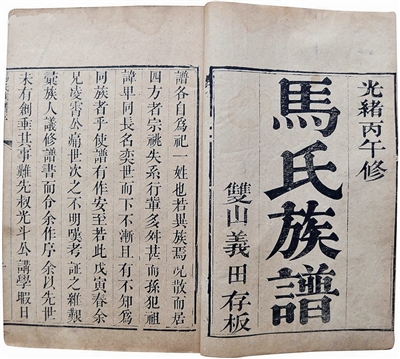 光緒丙午修
馬氏族譜
雙山義田存板
譜各自為祀一姓也若異族焉況散而居
四方者宗祧失系行輩多舛甚而孫犯祖
諱卑同長名奕世而下不漸且有不知為
同族者乎使譜有作安至若此戊寅春余
兄凌霄公痛世次之不明嘆考証之維艱
彙族人議修譜書而命余作序余以先世
未有創垂其事難先叔光斗公講學暇日